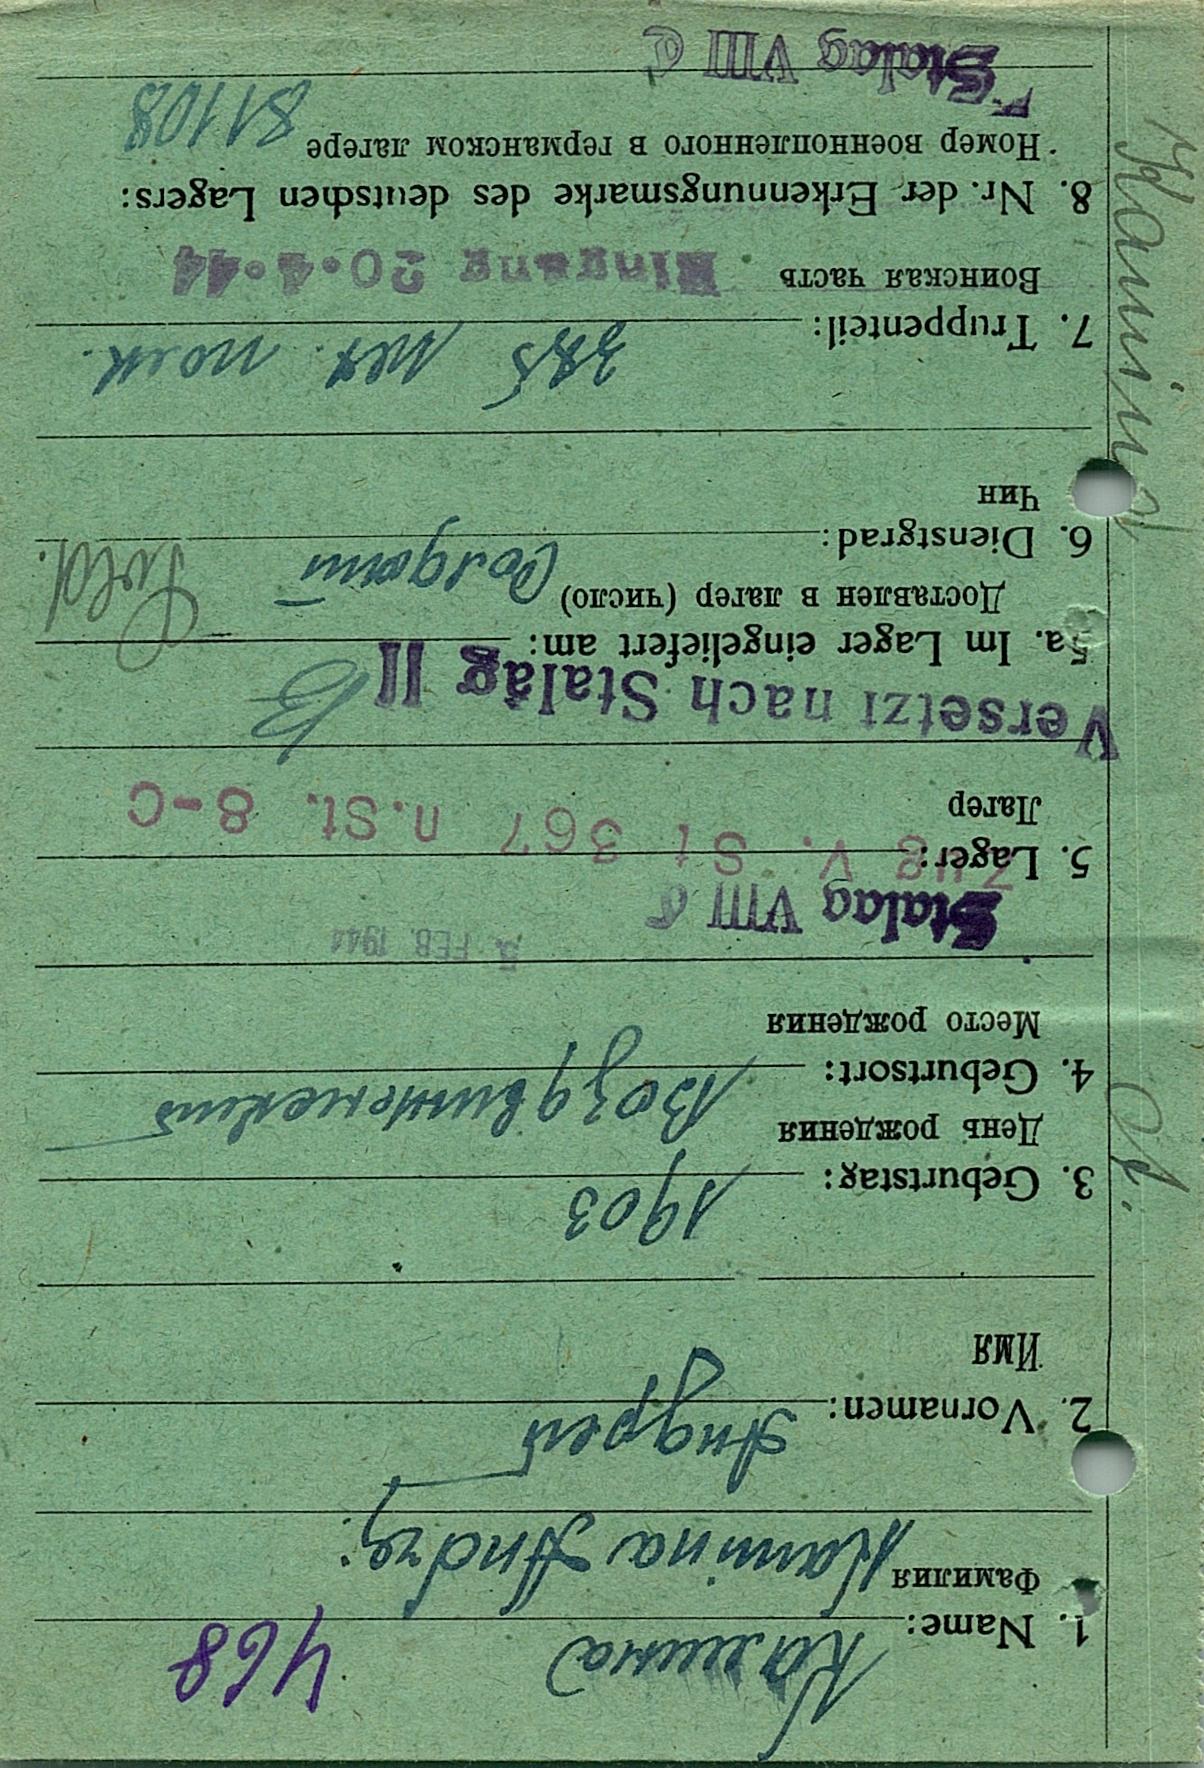 468
Камина
1. Name:
Фамилия
Kamina Andrej
2. Vornamen:
Андрей
Имя
3. Geburtstag: 1903
День рождения
4. Geburtsort: Воздвиженский
Место рождения
3. FEB. 1944
Stalag VIII C
5. Lager:
Zug v. St 367 n.St. 8-C
Лагер
Versetzt nach Stalag II B
5a. Im Lager eingeliefert am:
Доставлен в лагер (число)
6. Dienstgrad: Солдат Sold.
Чин
7. Truppenteil: 385 полк.
Воинская часть
Eingang 20.4.44
8. Nr. der Erkennungsmarke des deutschen Lagers:
Номер военнопленного в германском лагере 81108
Stalag VIII C
Kamina, A.